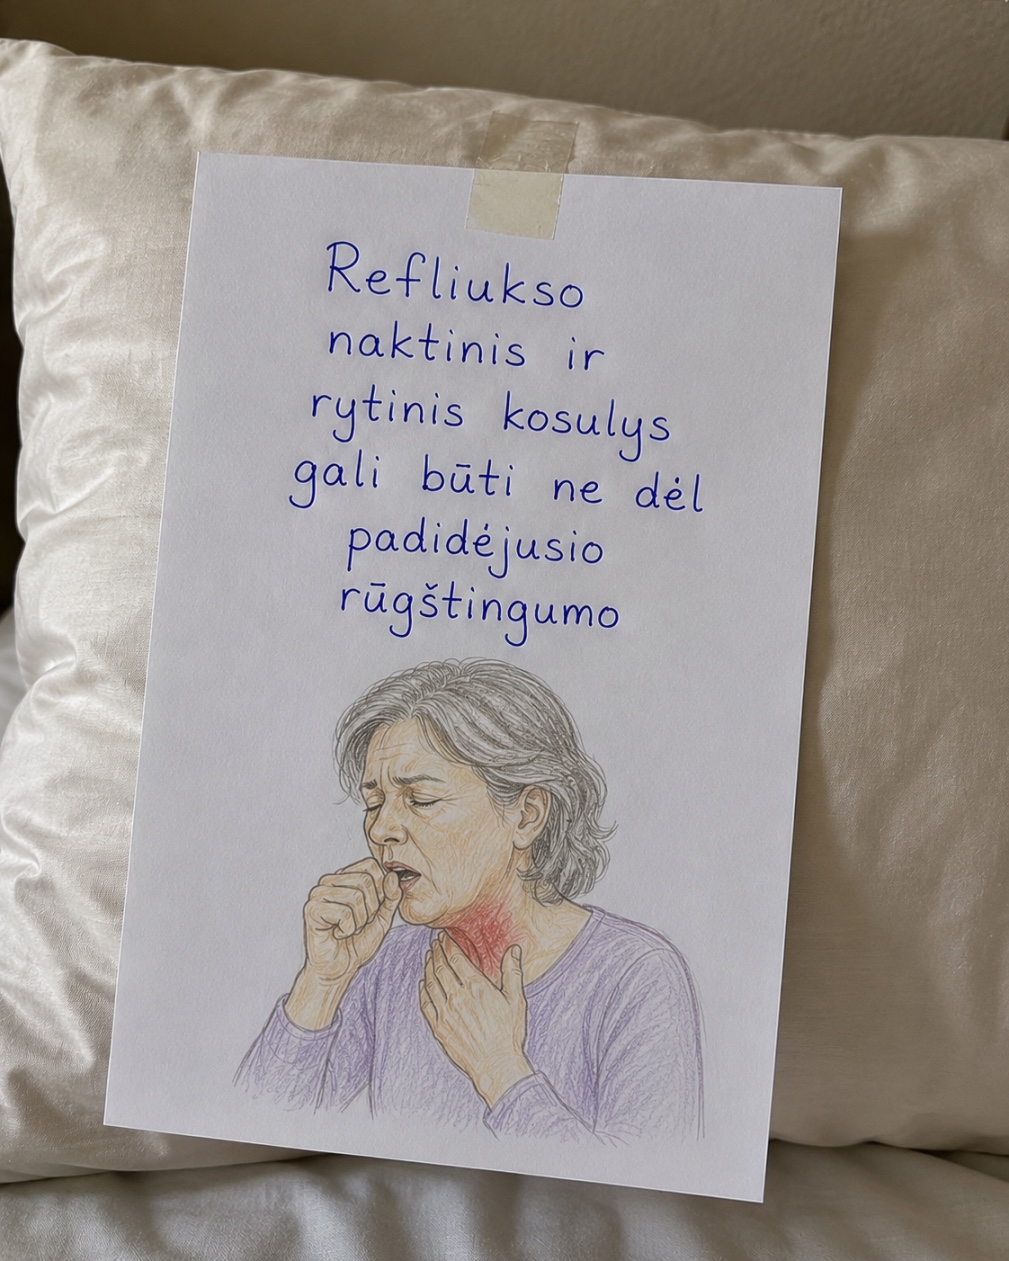 Refliukso
naktinis ir
rytinis kosulys
gali būti ne dėl
padidėjusio
rūgštingumo